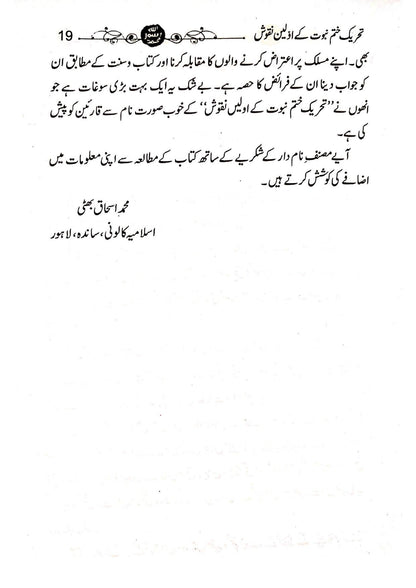 تحریک ختم نبوت کے اوّلین نقوش 19
بھی۔ اپنے مسلک پر اعتراض کرنے والوں کا مقابلہ کرنا اور کتاب و سنت کے مطابق ان
کو جواب دینا ان کے فرائض کا حصہ ہے۔ بے شک یہ ایک بہت بڑی سوغات ہے جو
انھوں نے ’’تحریک ختم نبوت کے اولیں نقوش‘‘ کے خوب صورت نام سے قارئین کو پیش
کی ہے۔
آیے مصنفِ نام دار کے شکریے کے ساتھ کتاب کے مطالعہ سے اپنی معلومات میں
اضافے کی کوشش کرتے ہیں۔
محمد اسحاق بھٹی
اسلامیہ کالونی، ساندہ، لاہور